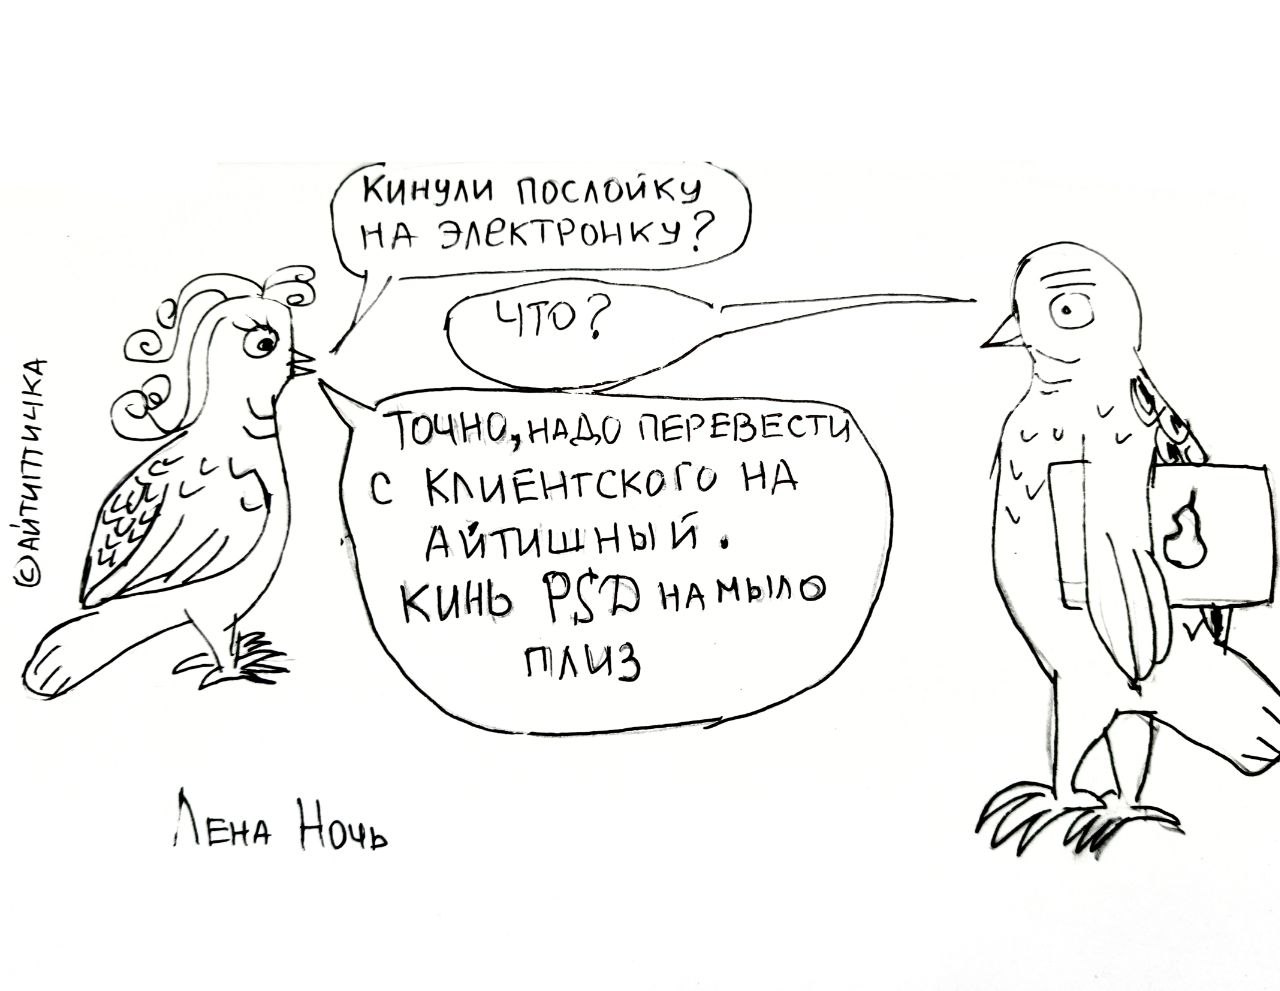 КИНУЛИ ПОСЛОЙКУ
НА ЭЛЕКТРОНКУ?
ЧТО?
ТОЧНО, НАДО ПЕРЕВЕСТИ
С КЛИЕНТСКОГО НА
АЙТИШНЫЙ.
КИНЬ PSD НА МЫЛО
ПЛИЗ
©АЙТИПТИЧКА
ЛЕНА НОЧЬ